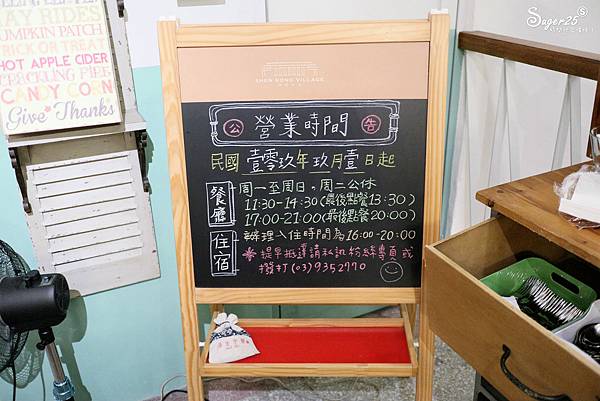 LAY RIDES
PUMPKIN PATCH
TRICK OR TREAT
HOT APPLE CIDER
CRACKLING FIRE
CANDY CORN
Give Thanks
Sager25
SHEN NONG VILLAGE
公 營業時間 告
民國 壹零玖年玖月壹日起
餐廳
周一至周日。周二公休
11:30-14:30(最後點餐13:30)
17:00-21:00(最後點餐20:00)
住宿
辦理入住時間為16:00-20:00
※提早抵達請私訊粉絲專頁或
撥打(03)9352770